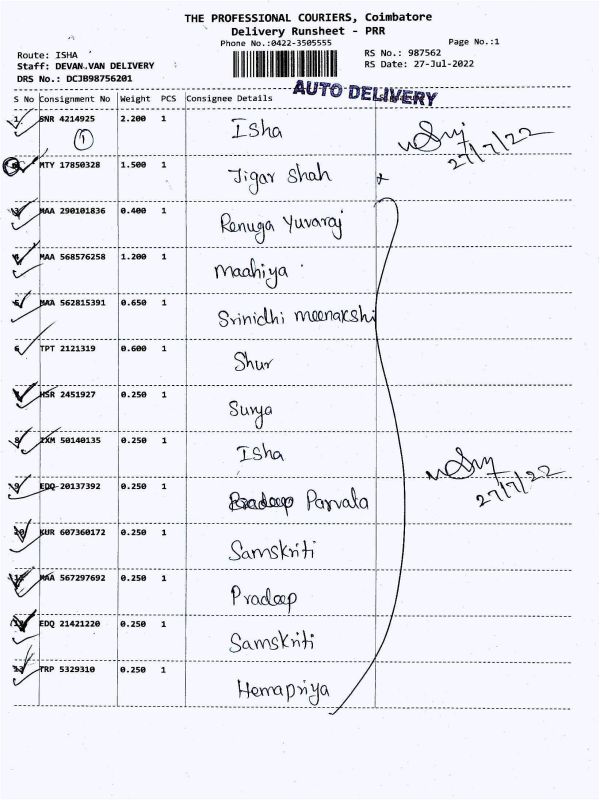 THE PROFESSIONAL COURIERS, Coimbatore
Delivery Runsheet - PRR
Phone No.:0422-3505555
Page No.:1
Route: ISHA
RS No.: 987562
Staff: DEVAN.VAN DELIVERY
RS Date: 27-Jul-2022
DRS No.: DCJB98756201
AUTO DELIVERY
S No Consignment No Weight PCS Consignee Details
1 SNR 4214925 2.200 1 Isha
1
27/7/22
MTY 17850328 1.500 1 Jigar Shah
3 MAA 290101836 0.400 1 Renuga Yuvaraj
4 MAA 568576258 1.200 1 Maahiya
5 MAA 562815391 0.650 1 Srinidhi meenakshi
6 TPT 2121319 0.600 1 Shur
7 HSR 2451927 0.250 1 Surya
8 IXM 50140135 0.250 1 Isha
27/7/22
9 EDQ 20137392 0.250 1 Pradeep Parvata
10 KUR 607360172 0.250 1 Samskriti
11 MAA 567297692 0.250 1 Pradeep
12 EDQ 21421220 0.250 1 Samskriti
13 TRP 5329310 0.250 1 Hemapriya